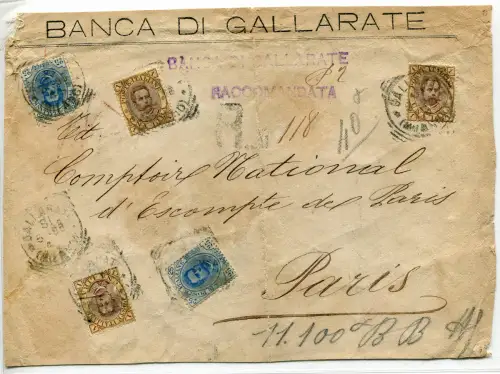 BANCA DI GALLARATE
BANCA DI GALLARATE
RACCOMANDATA
R
118
40
Comptoir National
d'Escompte de Paris
Paris
11.100 B B